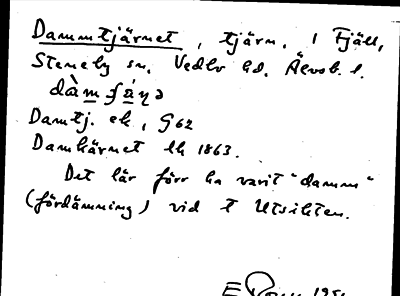 Dammtjärnet, tjärn. i Fjäll,
Steneby sn. Vedbo hd. Älvsb. l.
dàm ʃá̱ṇə
Damtj. ek, G62
Damkärnet lk 1863.
Det lär förr ha varit "damm"
(fördämning) vid t Utsikten.